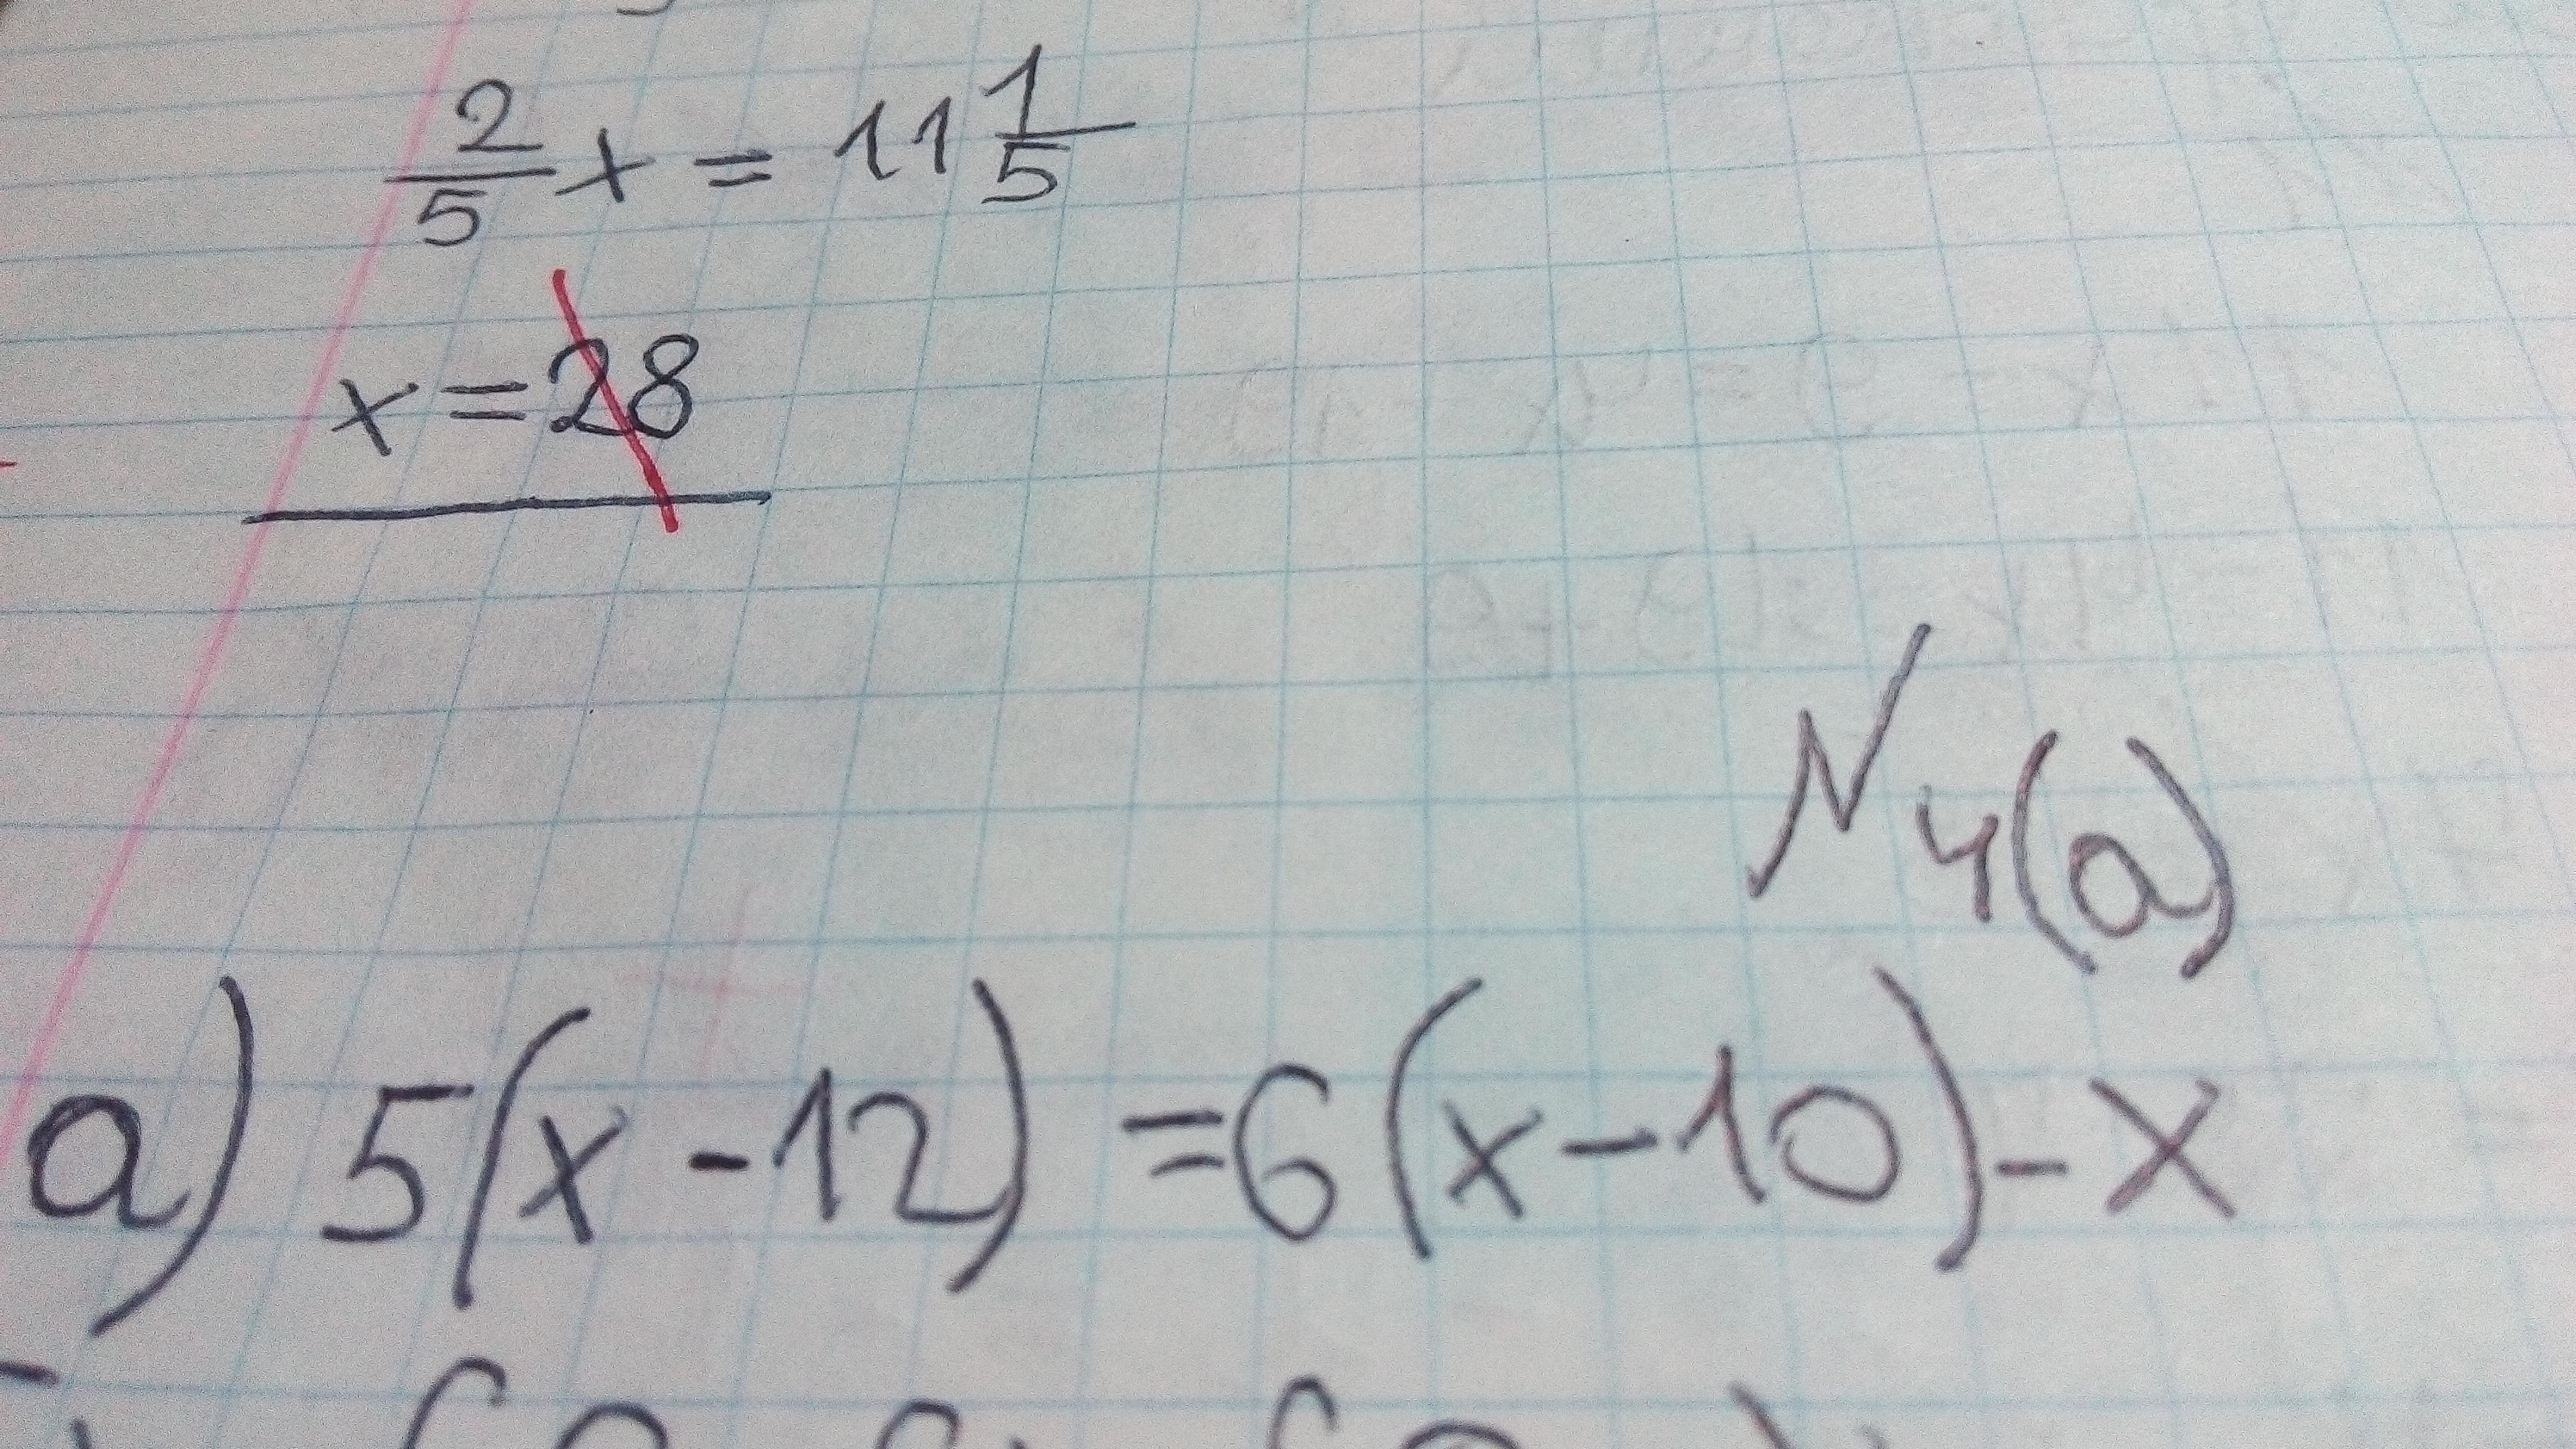 2/5 x = 11 1/5
x = 28
N4(a)
a) 5(x - 12) = 6(x - 10) - x